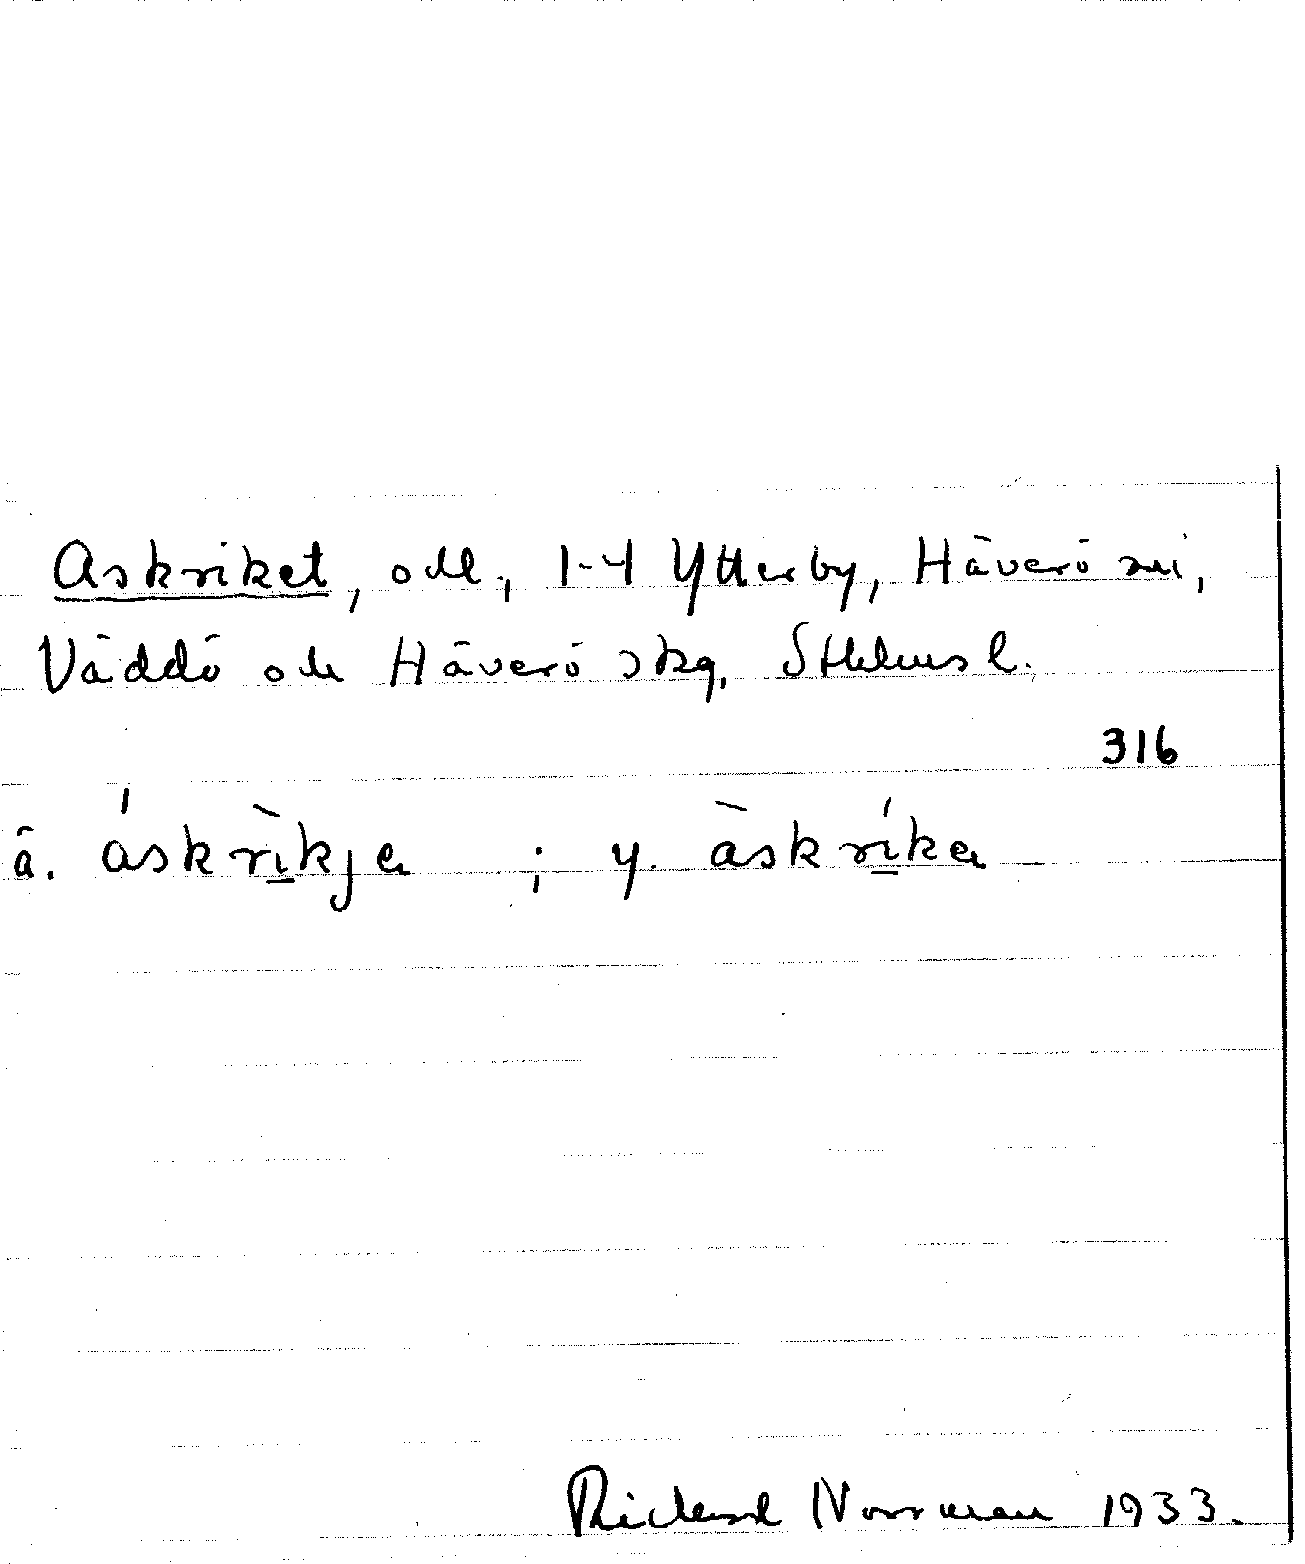 Askriket, odl., 1-4 Ytterby, Häverö sn,
Väddö och Häverö skg, Sthlms l.
316
ä. áskrìkja ; y. àskríka
Rickard Norrman 1933.